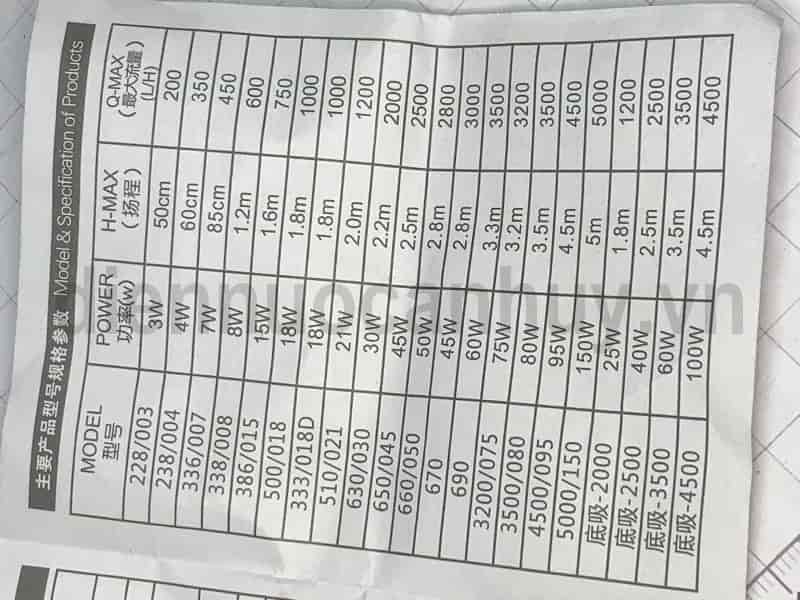 主要产品型号规格参数 Model & Specification of Products
MODEL POWER H-MAX Q-MAX
型号 功率(w) (扬程) (最大流量)
(L/H)
228/003 3W 50cm 200
238/004 4W 60cm 350
336/007 7W 85cm 450
338/008 8W 1.2m 600
386/015 15W 1.6m 750
500/018 18W 1.8m 1000
333/018D 18W 1.8m 1000
510/021 21W 2.0m 1200
630/030 30W 2.2m 2000
650/045 45W 2.5m 2500
660/050 50W 2.8m 2800
670 45W 2.8m 3000
690 60W 3.3m 3500
3200/075 75W 3.2m 3200
3500/080 80W 3.5m 3500
4500/095 95W 4.5m 4500
5000/150 150W 5m 5000
底吸-2000 25W 1.8m 1200
底吸-2500 40W 2.5m 2500
底吸-3500 60W 3.5m 3500
底吸-4500 100W 4.5m 4500
diennuocanhuy.vn